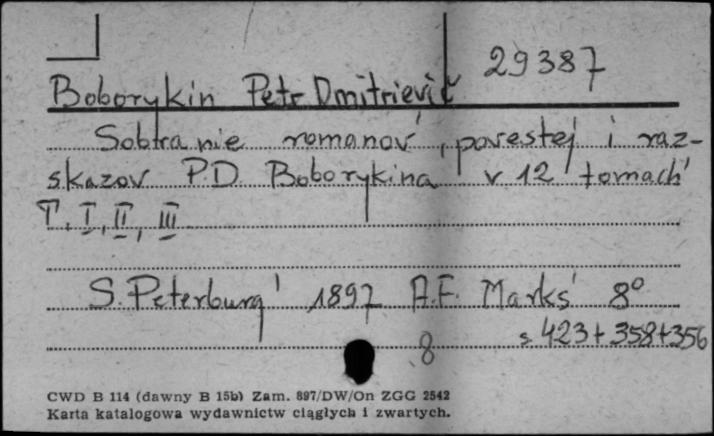 29387
Boborykin Petr Dmitrievič
Sobranie romanov', povestej i raz-
skazov P.D. Boborykina v 12 tomach'
T. I, II, III
S. Peterburg' 1897 A.F. Marks' 8°
s. 423+358+356
8
CWD B 114 (dawny B 15b) Zam. 897/DW/On ZGG 2542
Karta katalogowa wydawnictw ciągłych i zwartych.